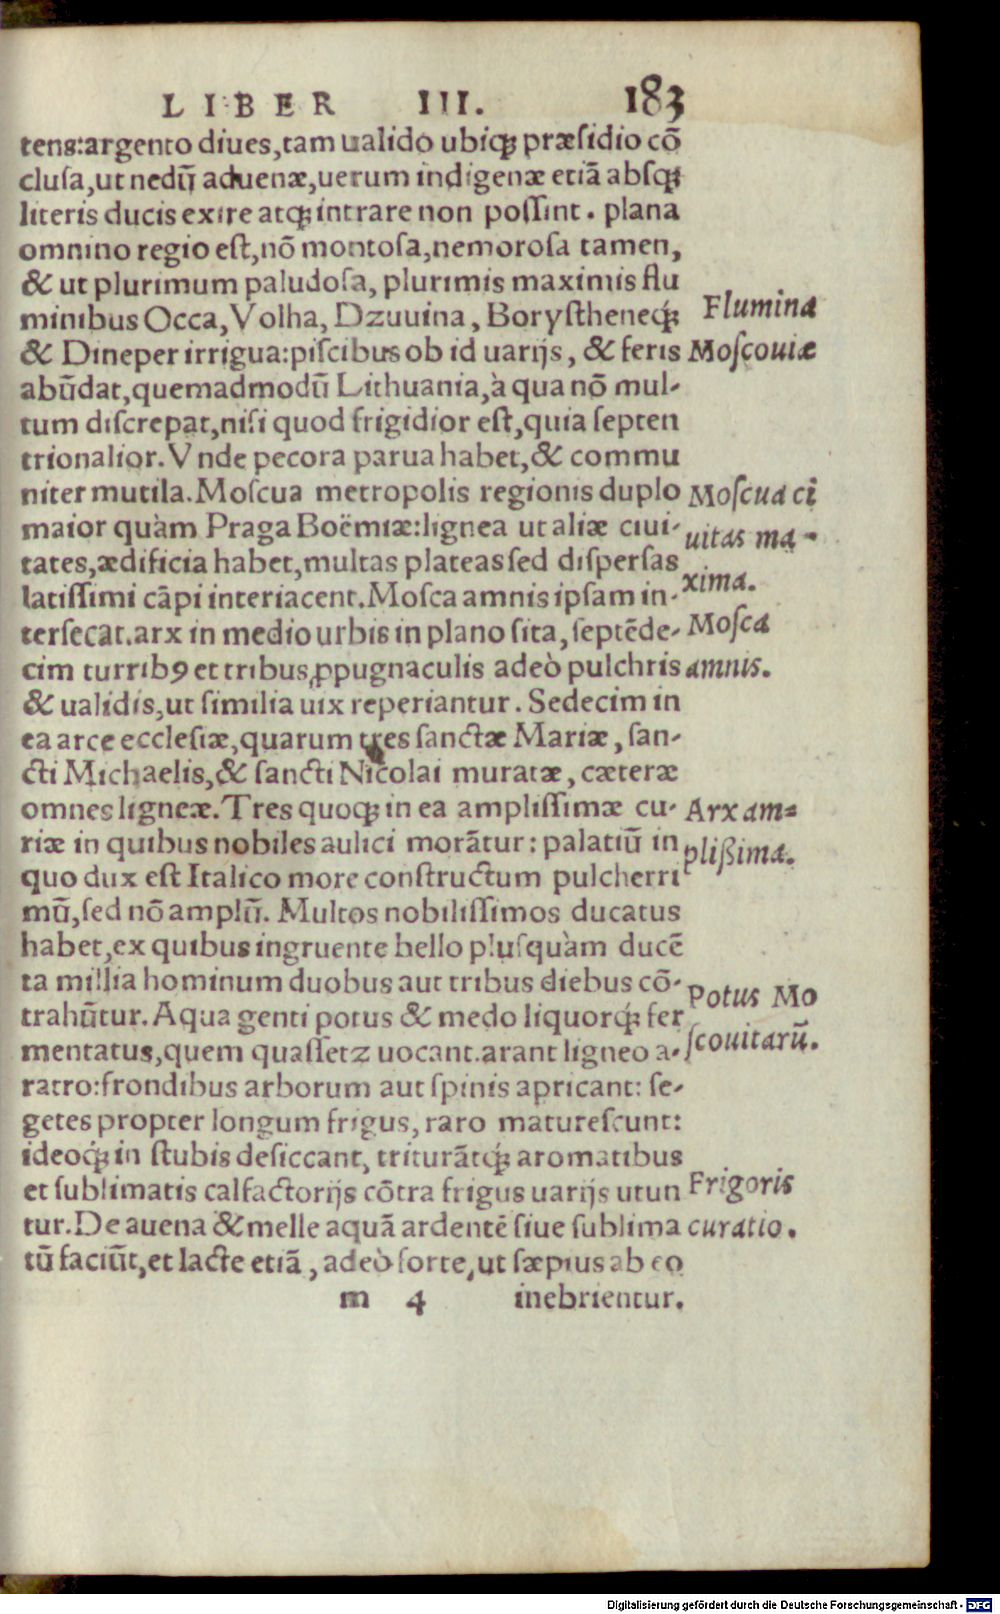 LIBER III. 183
tens:argento diues,tam ualido ubiqꝫ præsidio cō
clusa,ut nedū aduenæ,uerum indigenæ etiā absqꝫ
literis ducis exire atqꝫ intrare non possint. plana
omnino regio est,nō montosa,nemorosa tamen,
& ut plurimum paludosa, plurimis maximis flu
minibus Occa, Volha, Dzuuina, Borystheneqꝫ́
Flumina
& Dineper irrigua:piscibus ob id uarijs, & feris
Moscouiæ
abūdat,quemadmodū Lithuania,à qua nō mul-
tum discrepat,nisi quod frigidior est,quia septen
trionalior. Vnde pecora parua habet,& commu
niter mutila. Moscua metropolis regionis duplo
Moscua ci
maior quàm Praga Boëmiæ:lignea ut aliæ ciui-
uitas ma-
tates,ædificia habet,multas plateas sed dispersas
latissimi cāpi interiacent. Mosca amnis ipsam in-
xima.
tersecat.arx in medio urbis in plano sita, septēde-
Mosca
cim turribꝰ et tribus ꝓpugnaculis adeò pulchris
amnis.
& ualidis,ut similia uix reperiantur. Sedecim in
ea arce ecclesiæ,quarum tres sanctæ Mariæ, san-
cti Michaelis,& sancti Nicolai muratæ, cæteræ
omnes ligneæ. Tres quoqꝫ in ea amplissimæ cu-
Arx am-
riæ in quibus nobiles aulici morātur: palatiū in
plißima.
quo dux est Italico more constructum pulcherri
mū,sed nō amplū. Multos nobilissimos ducatus
habet,ex quibus ingruente bello plusquàm ducē
ta millia hominum duobus aut tribus diebus cō-
Potus Mo
trahūtur. Aqua genti potus & medo liquorqꝫ́ fer
mentatus,quem quassetz uocant.arant ligneo a-
scouitarū.
ratro:frondibus arborum aut spinis apricant: se-
getes propter longum frigus, raro maturescunt:
ideoqꝫ́ in stubis desiccant, triturātqꝫ́ aromatibus
et sublimatis calfactorijs cōtra frigus uarijs utun
Frigoris
tur. De auena & melle aquā ardentē siue sublima
curatio.
tū faciūt,et lacte etiā, adeò forte,ut sæpius ab eo
m 4 inebrientur.
Digitalisierung gefördert durch die Deutsche Forschungsgemeinschaft - DFG